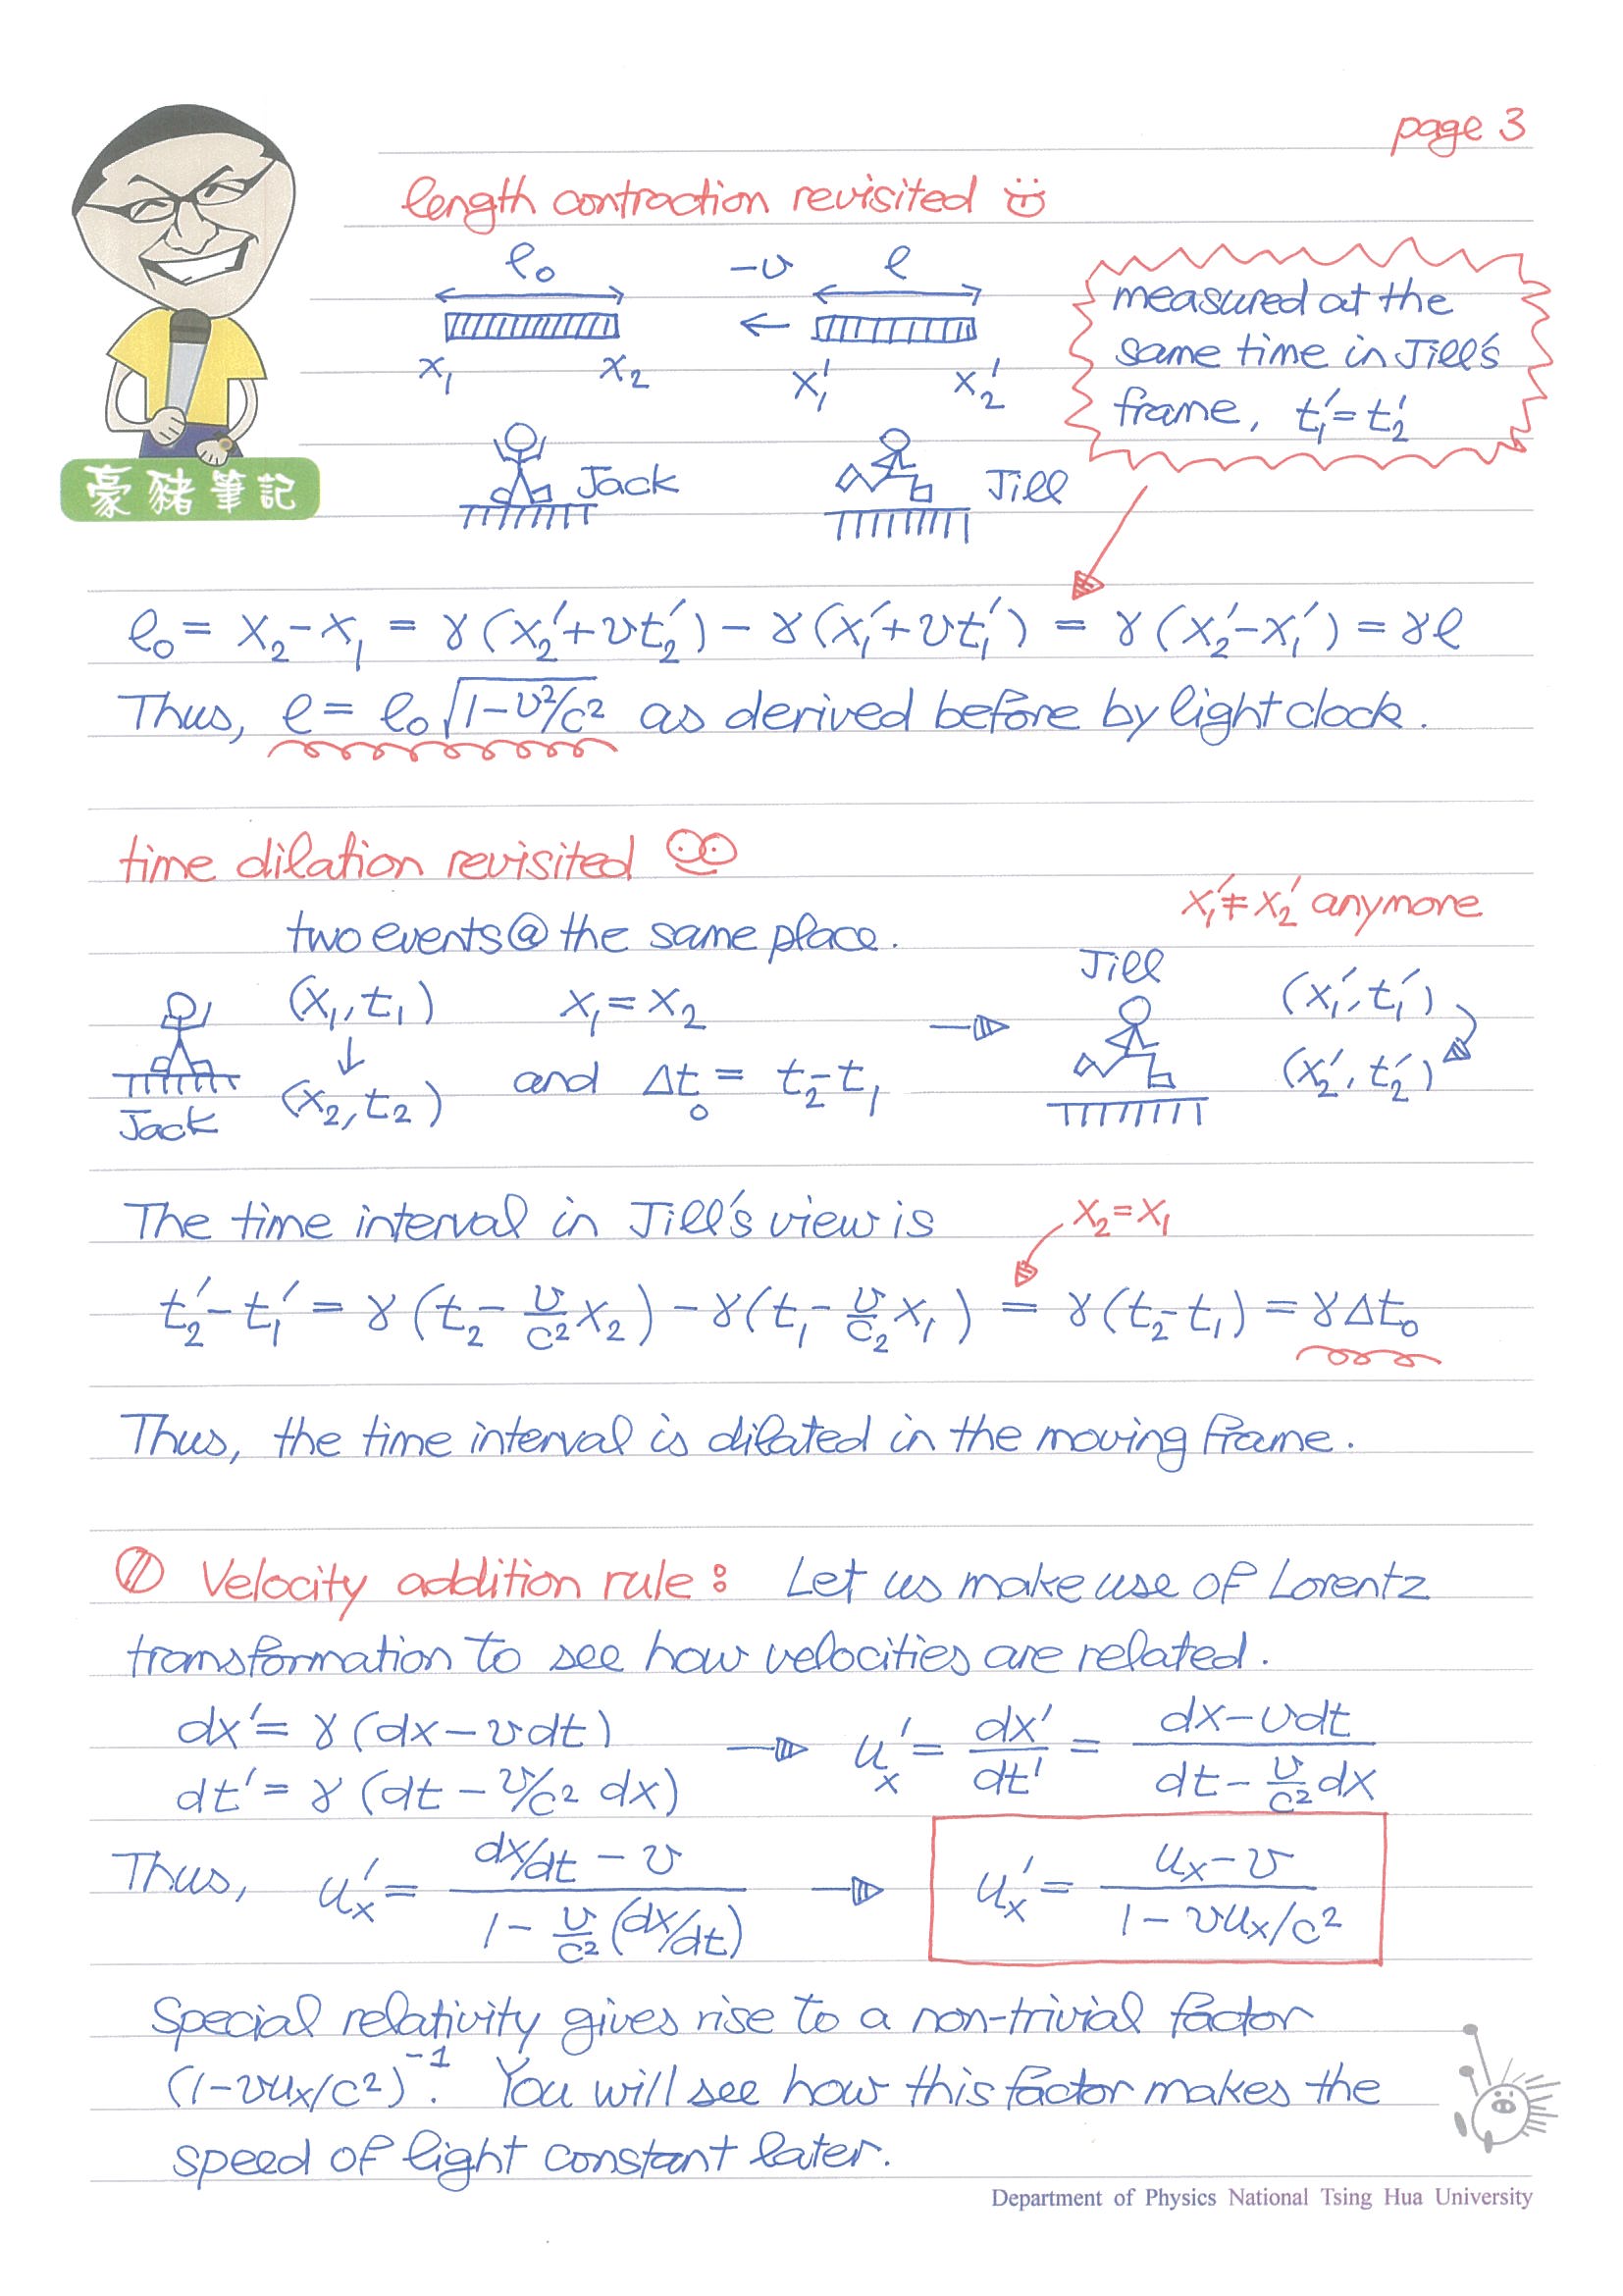 page 3
length contraction revisited
ℓ₀ -v ℓ
x₁ x₂ x₁' x₂'
measured at the
same time in Jill's
frame, t₁'=t₂'
Jack Jill
豪豬筆記
ℓ₀ = x₂-x₁ = γ(x₂'+vt₂') - γ(x₁'+vt₁') = γ(x₂'-x₁') = γℓ
Thus, ℓ = ℓ₀√(1-v²/c²) as derived before by light clock.
time dilation revisited
x₁'≠x₂' anymore
two events @ the same place.
Jill
(x₁,t₁) x₁=x₂ (x₁',t₁')
↓
(x₂,t₂) and Δt₀ = t₂-t₁ (x₂',t₂')
Jack
The time interval in Jill's view is x₂=x₁
t₂'-t₁' = γ(t₂ - v/c² x₂) - γ(t₁ - v/c₂ x₁) = γ(t₂-t₁) = γΔt₀
Thus, the time interval is dilated in the moving frame.
Velocity addition rule: Let us make use of Lorentz
transformation to see how velocities are related.
dx' = γ(dx - vdt) → uₓ' = dx'/dt' = (dx-vdt)/(dt - v/c² dx)
dt' = γ(dt - v/c² dx)
Thus, uₓ' = (dx/dt - v)/(1 - v/c² (dx/dt)) → uₓ' = (uₓ-v)/(1-vuₓ/c²)
Special relativity gives rise to a non-trivial factor
(1-vuₓ/c²)⁻¹. You will see how this factor makes the
speed of light constant later.
Department of Physics National Tsing Hua University